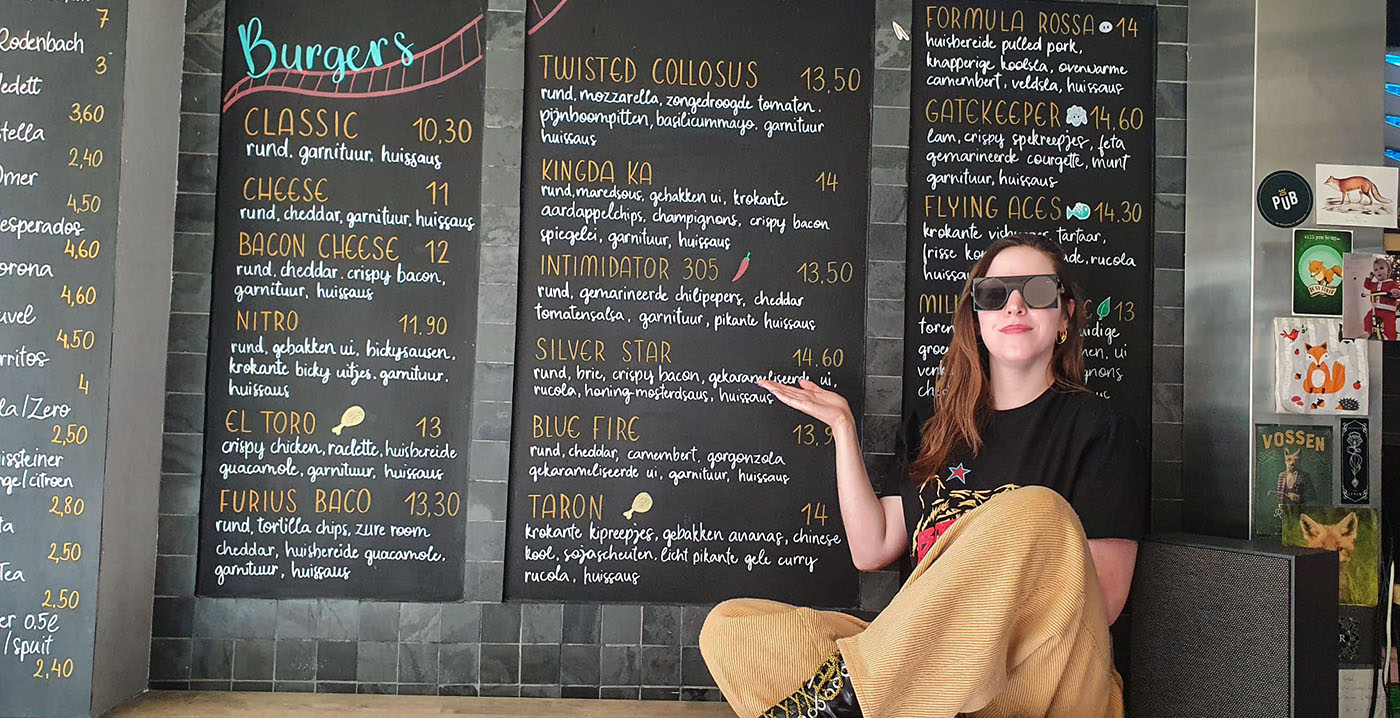 7
Rodenbach
3
edett
3,60
stella
2,40
Omer
4,50
esperados
4,60
orona
4,60
uvel
4,50
rritos
4
la/Zero
2,50
issteiner
nge/citroen
2,80
ta
2,50
Tea
2.50
er 0,5l
/spuit
2,40
Burgers
CLASSIC 10,30
rund. garnituur. huissaus
CHEESE 11
rund, cheddar, garnituur, huissaus
BACON CHEESE 12
rund. cheddar. crispy bacon,
garnituur, huissaus
NITRO 11.90
rund, gebakken ui, bickysausen,
krokante bicky uitjes. garnituur,
huissaus
EL TORO 13
crispy chicken, raclette, huisbereide
guacamole, garnituur, huissaus
FURIUS BACO 13,30
rund, tortilla chips, zure room
cheddar, huisbereide guacamole,
garnituur, huissaus
TWISTED COLLOSUS 13,50
rund. mozzarella, zongedroogde tomaten.
pijnboompitten, basilicummayo. garnituur
huissaus
KINGDA KA 14
rund, maredsous, gebakken ui, krokante
aardappelchips, champignons, crispy bacon
spiegelei, garnituur, huissaus
INTIMIDATOR 305 13,50
rund, gemarineerde chilipepers, cheddar
tomatensalsa, garnituur, pikante huissaus
SILVER STAR 14.60
rund, brie, crispy bacon, gekarameliseerde ui,
rucola, honing-mosterdsaus, huissaus
BLUE FIRE 13,9
rund, cheddar, camembert, gorgonzola
gekarameliseerde ui, garnituur, huissaus
TARON 14
krokante kipreepjes, gebakken ananas, chinese
kool, sojascheuten. licht pikante gele curry
rucola, huissaus
FORMULA ROSSA 14
huisbereide pulled pork,
knapperige koolsla, ovenwarme
camembert, veldsla, huissaus
GATEKEEPER 14.60
lam, crispy spekreepjes, feta
gemarineerde courgette, munt
garnituur, huissaus
FLYING ACES 14.30
krokante visburger, tartaar,
frisse ko ade, rucola
huissa
MIL C 13
toren uidige
groe men, ui
venk gnons
cra uc
PUB
VOSSEN